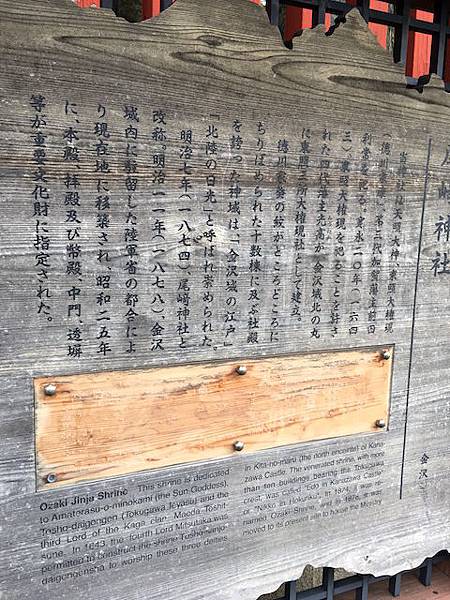 尾﨑神社
当神社は天照大神、東照大権現
（徳川家康）、第三代加賀藩主前田
利常を祀る。寛永二〇年（一六四
三）、東照大権現を祀ることを許さ
れた四代藩主光高が、金沢城北の丸
に東照三所大権現社として建立。
徳川家葵の紋がところどころに
ちりばめられた十数棟に及ぶ社殿
を誇った神域は「金沢城の江戸」
「北陸の日光」と呼ばれ崇められた。
明治七年（一八七四）、尾﨑神社と
改称。明治一一年（一八七八）、金沢
城内に駐留した陸軍省の都合によ
り現在地に移築され、昭和二五年
に、本殿、拝殿及び幣殿、中門、透塀
等が重要文化財に指定された。
金沢
Ozaki Jinja Shrine This shrine is dedicated
to Amaterasu-o-minokami (the Sun Goddess),
Tosho-daigongen (Tokugawa Ieyasu) and the
third Lord of the Kaga clan, Maeda Toshit-
sune. In 1643, the fourth Lord Mitsutaka was
permitted to construct the shrine Tosho-sanjo-
daigongensha to worship these three deities
in Kita-no-maru (the north enceinte) of Kana-
zawa Castle. The venerated shrine, with more
than ten buildings bearing the Tokugawa
crest, was called "Edo in Kanazawa Castle"
or "Nikko in Hokuriku". In 1874, it was re-
named Ozaki Shrine, and in 1878, it was
moved to its present site to house the Ministry